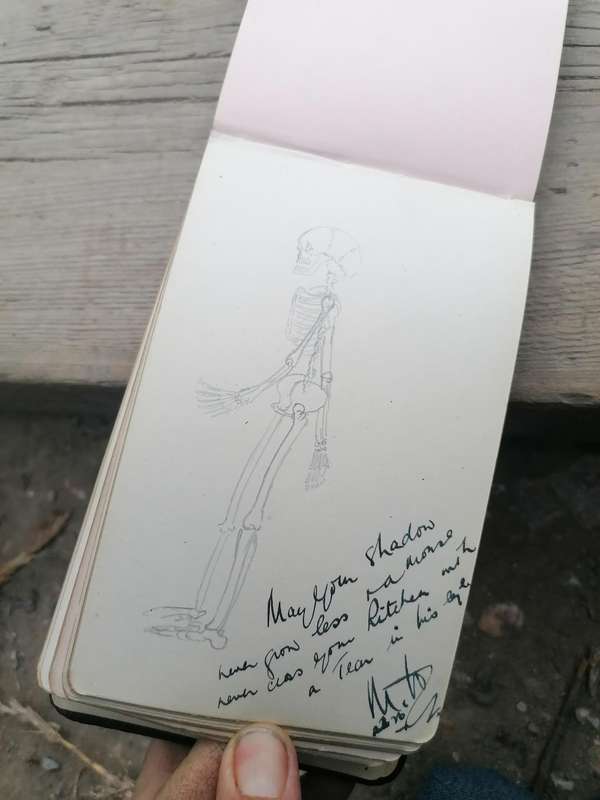 May your shadow
never grow less na mouse
never cross your Kitchen with
a Tear in his eye